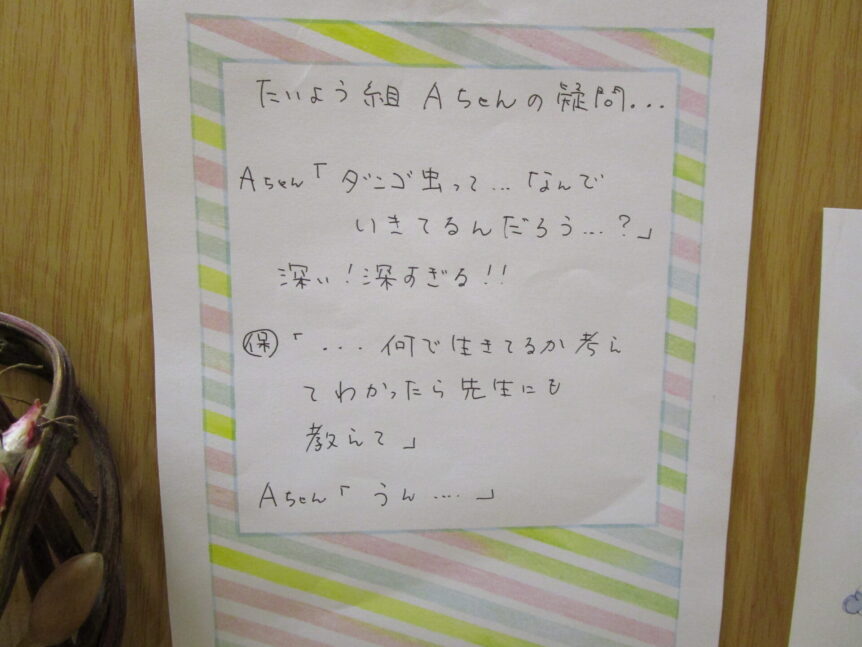 たいよう組 Aちゃんの疑問...
Aちゃん「ダンゴ虫って...「なんで
いきてるんだろう...?」
深い!深すぎる!!
保「...何で生きてるか考え
てわかったら先生にも
教えて」
Aちゃん「うん....」